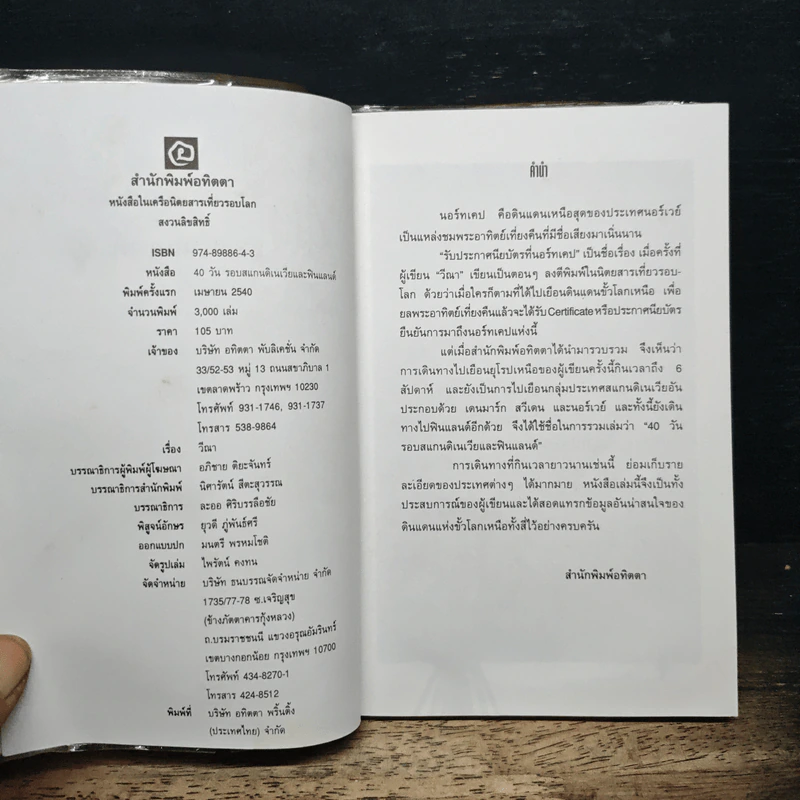 สำนักพิมพ์อทิตตา
หนังสือในเครือนิตยสารเที่ยวรอบโลก
สงวนลิขสิทธิ์
ISBN 974-89886-4-3
หนังสือ 40 วัน รอบสแกนดิเนเวียและฟินแลนด์
พิมพ์ครั้งแรก เมษายน 2540
จำนวนพิมพ์ 3,000 เล่ม
ราคา 105 บาท
เจ้าของ บริษัท อทิตตา พับลิเคชั่น จำกัด
33/52-53 หมู่ 13 ถนนสุขาภิบาล 1
เขตลาดพร้าว กรุงเทพฯ 10230
โทรศัพท์ 931-1746, 931-1737
โทรสาร 538-9864
เรื่อง วีณา
บรรณาธิการผู้พิมพ์ผู้โฆษณา อภิชาย ติยะจันทร์
บรรณาธิการสำนักพิมพ์ นิศารัตน์ สีตะสุวรรณ
บรรณาธิการ ละออ ศิริบรรลือชัย
พิสูจน์อักษร ยุวดี ภู่พันธ์ศรี
ออกแบบปก มนตรี พรหมโชติ
จัดรูปเล่ม ไพรัตน์ คงทน
จัดจำหน่าย บริษัท ธนบรรณจัดจำหน่าย จำกัด
1735/77-78 ซ.เจริญสุข
(ข้างภัตตาคารกุ้งหลวง)
ถ.บรมราชชนนี แขวงอรุณอัมรินทร์
เขตบางกอกน้อย กรุงเทพฯ 10700
โทรศัพท์ 434-8270-1
โทรสาร 424-8512
พิมพ์ที่ บริษัท อทิตตา พริ้นติ้ง
(ประเทศไทย) จำกัด
คำนำ
นอร์ทเคป คือดินแดนเหนือสุดของประเทศนอร์เวย์
เป็นแหล่งชมพระอาทิตย์เที่ยงคืนที่มีชื่อเสียงมาเนิ่นนาน
"รับประกาศนียบัตรที่นอร์ทเคป" เป็นชื่อเรื่อง เมื่อครั้งที่
ผู้เขียน "วีณา" เขียนเป็นตอนๆ ลงตีพิมพ์ในนิตยสารเที่ยวรอบ-
โลก ด้วยว่าเมื่อใครก็ตามที่ได้ไปเยือนดินแดนขั้วโลกเหนือ เพื่อ
ยลพระอาทิตย์เที่ยงคืนแล้วจะได้รับ Certificate หรือประกาศนียบัตร
ยืนยันการมาถึงนอร์ทเคปแห่งนี้
แต่เมื่อสำนักพิมพ์อทิตตาได้นำมารวบรวม จึงเห็นว่า
การเดินทางไปเยือนยุโรปเหนือของผู้เขียนครั้งนี้กินเวลาถึง 6
สัปดาห์ และยังเป็นการไปเยือนกลุ่มประเทศสแกนดิเนเวียอัน
ประกอบด้วย เดนมาร์ก สวีเดน และนอร์เวย์ และทั้งนี้ยังเดิน
ทางไปฟินแลนด์อีกด้วย จึงได้ใช้ชื่อในการรวมเล่มว่า "40 วัน
รอบสแกนดิเนเวียและฟินแลนด์"
การเดินทางที่กินเวลายาวนานเช่นนี้ ย่อมเก็บราย
ละเอียดของประเทศต่างๆ ได้มากมาย หนังสือเล่มนี้จึงเป็นทั้ง
ประสบการณ์ของผู้เขียนและได้สอดแทรกข้อมูลอันน่าสนใจของ
ดินแดนแห่งขั้วโลกเหนือทั้งสี่ไว้อย่างครบครัน
สำนักพิมพ์อทิตตา